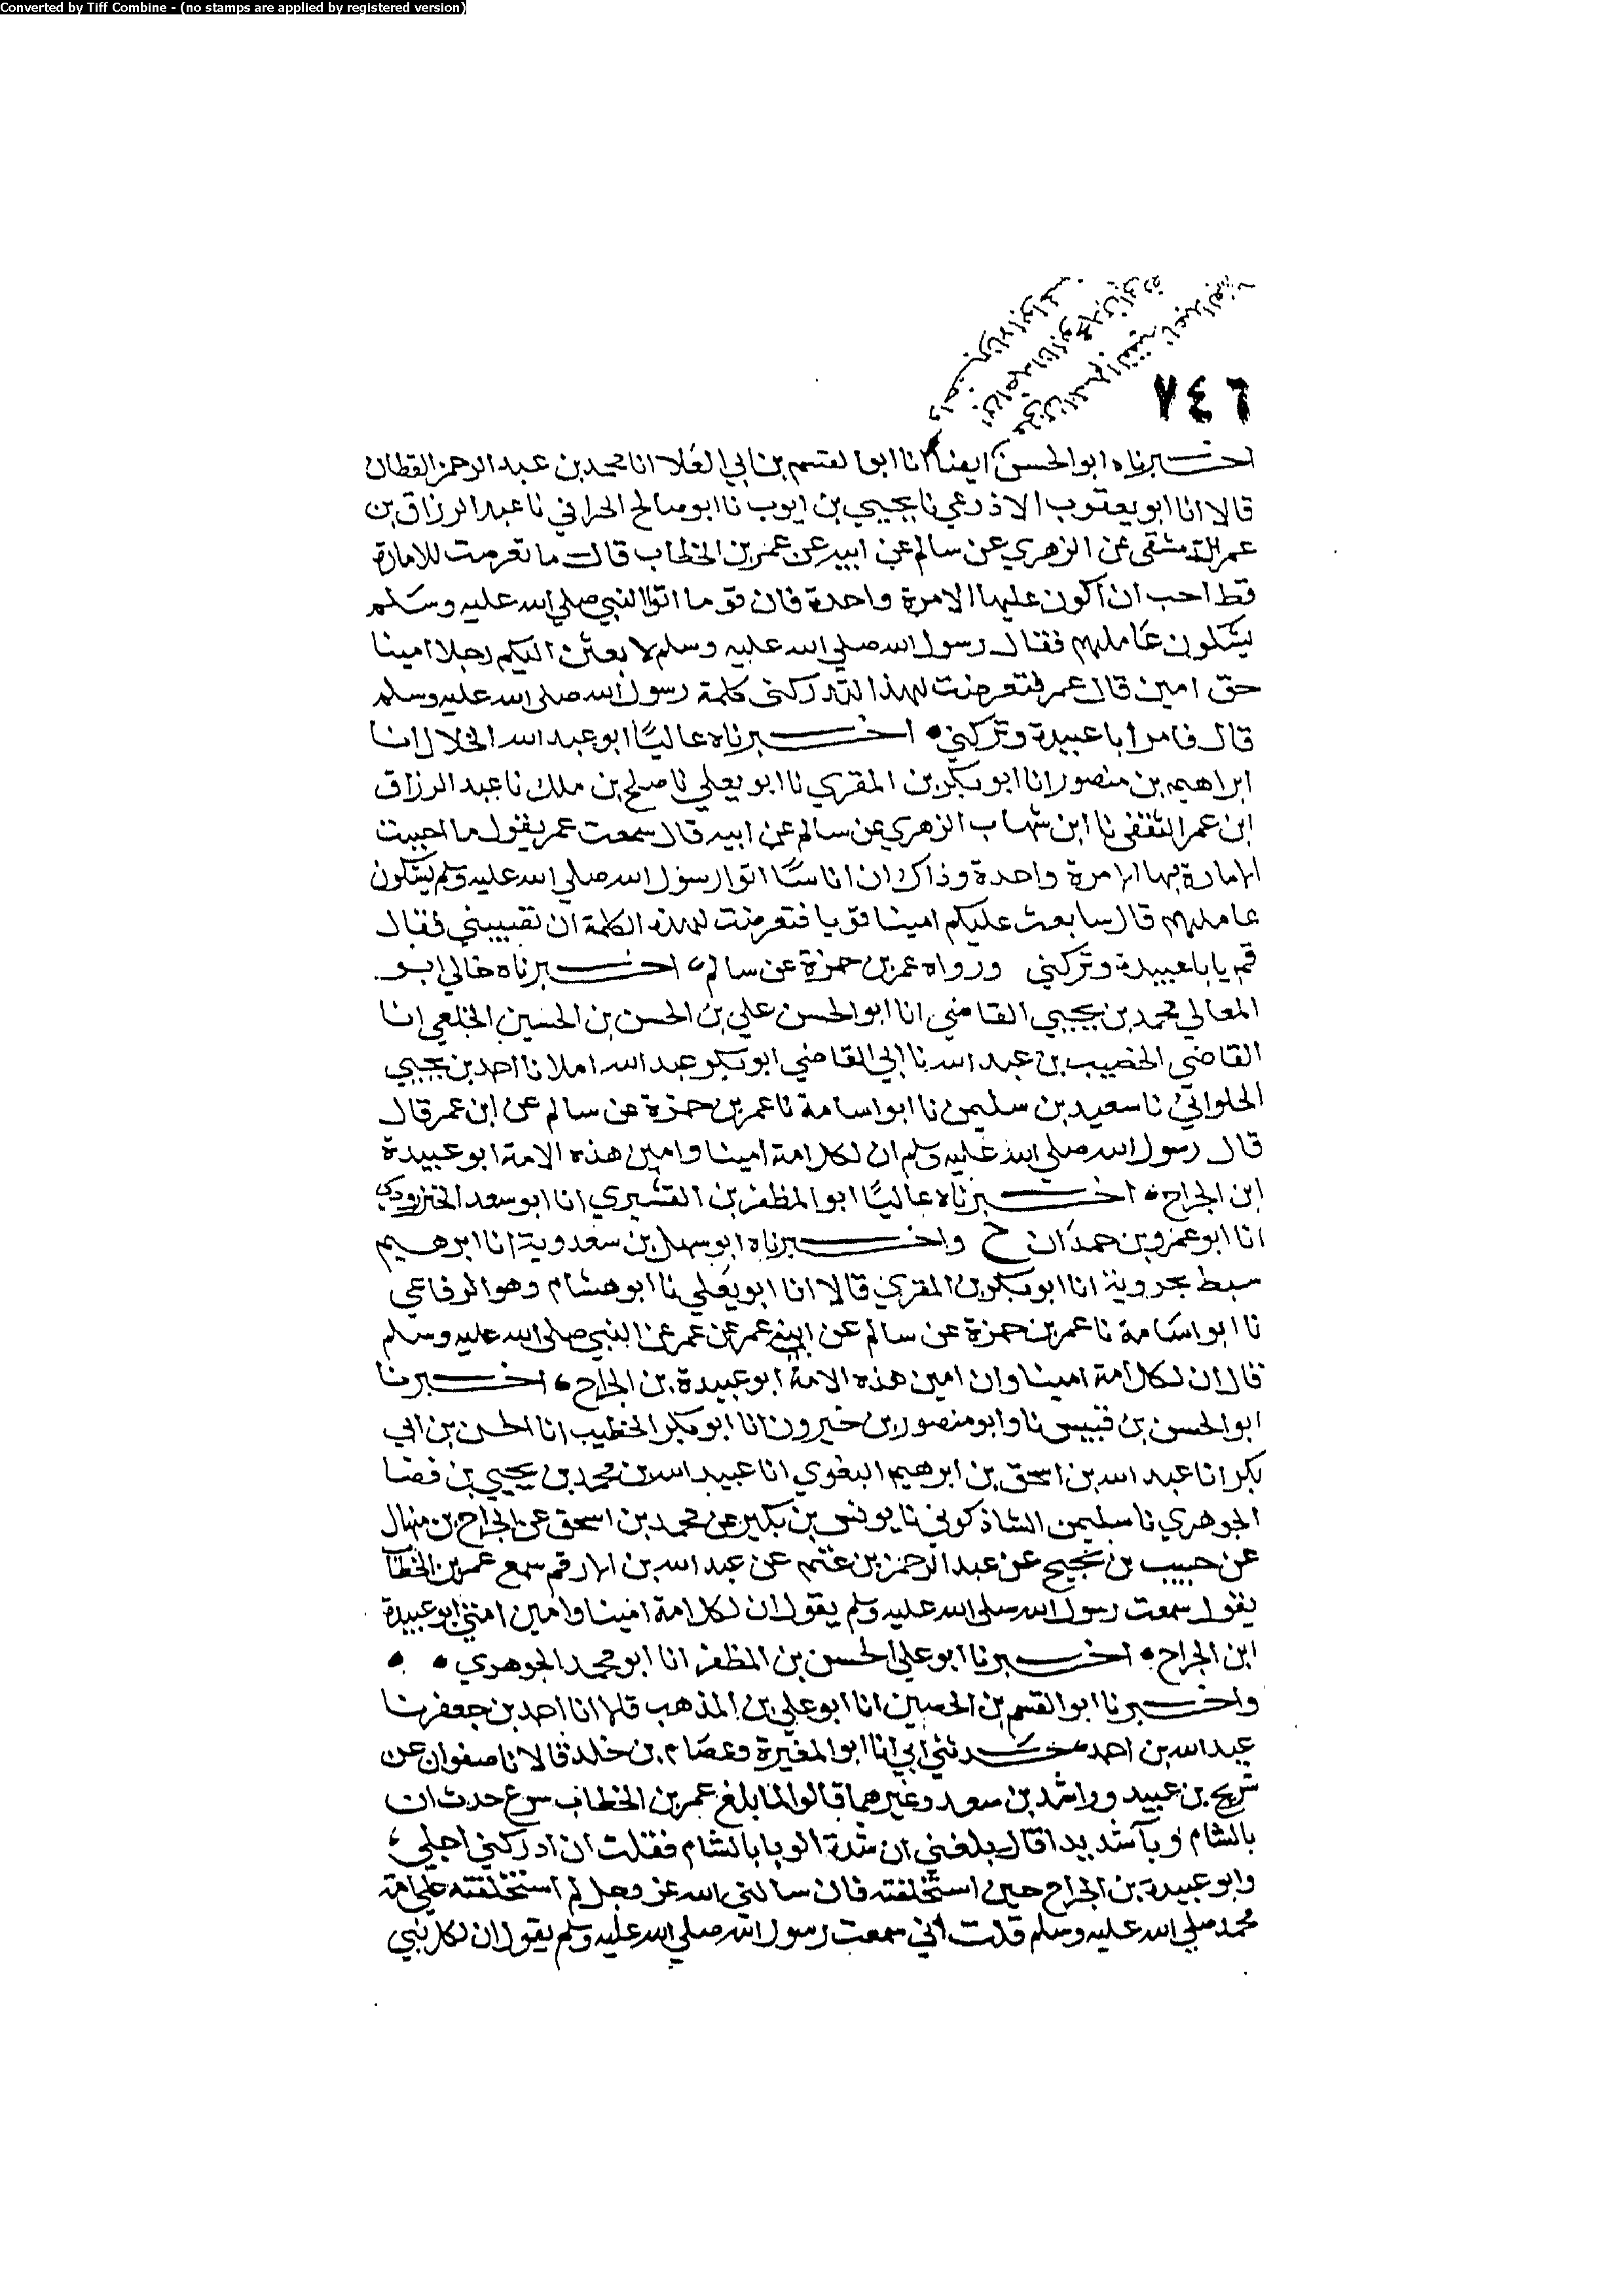 Converted by Tiff Combine - (no stamps are applied by registered version)
٧٤٦
اخبرناه ابو الحسن ايضا انا ابو القسم بن ابي العلا انا محمد بن عبد الرحمن القطان
قالا انا ابو يعقوب الاذرعي نا يحيي بن ايوب نا ابو صالح الحراني نا عبد الرزاق بن
عمر الدمشقي عن الزهري عن سالم عن ابيه عن عمر بن الخطاب قال ما تعرضت للامارة
قط احب ان اكون عليها الا مرة واحدة فان قوما اتوا النبي صلي الله عليه وسلم
يشكون عاملهم فقال رسول الله صلي الله عليه وسلم لابعثن اليكم رجلا امينا
حق امين قال عمر فتعرضت لهذا لتدركني كلمة رسول الله صلي الله عليه وسلم
قال فامر ابا عبيدة وتركني اخبرناه عاليا ابو عبد الله الخلال انا
ابراهيم بن منصور انا ابو بكر بن المقري نا ابو يعلي نا صلح بن ملك نا عبد الرزاق
ابن عمر الثقفي نا ابن شهاب الزهري عن سالم عن ابيه قال سمعت عمر يقول ما احببت
الامارة الا مرة واحدة وذاك ان اناسا اتوا رسول الله صلي الله عليه وسلم يشكون
عاملهم قال سابعث عليكم امينا قويا فتعرضت لهذه الكلمة ان تصيبني فقال
قم يا با عبيدة وتركني ورواه عمر بن حمزة عن سالم اخبرناه خالي ابو
المعالي محمد بن يحيي القاضي انا ابو الحسن علي بن الحسن بن الحسين الخلعي انا
القاضي الخصيب بن عبد الله نا ابي القاضي ابو بكر عبد الله املا نا احمد بن يحيي
الحلواني نا سعيد بن سليمن نا ابو اسامة نا عمر بن حمزة عن سالم عن ابن عمر قال
قال رسول الله صلي الله عليه وسلم ان لكل امة امينا وامين هذه الامة ابو عبيدة
ابن الجراح اخبرناه عاليا ابو المظفر بن القشيري انا ابو سعد الخنزرودي
انا ابو عمرو بن حمدان ح واخبرناه ابو سهل بن سعدوية انا ابرهيم
سبط بحروية انا ابو بكر بن المقري قالا انا ابو يعلي نا ابو هشام وهو الرفاعي
نا ابو اسامة نا عمر بن حمزة عن سالم عن عمر عن النبي صلي الله عليه وسلم
قال ان لكل امة امينا وان امين هذه الامة ابو عبيدة بن الجراح اخبرنا
ابو الحسن بن قبيس نا وابو منصور بن خيرون انا ابو بكر الخطيب انا الحسن بن ابي
بكر انا عبد الله بن اسحق بن ابرهيم البغوي انا عبيد الله بن محمد بن يحيي بن قضا
الجوهري نا سليمن الشاذكوني نا يونس بن بكير عن محمد بن اسحق عن الجراح بن منهال
عن حبيب بن نجيح عن عبد الرحمن بن غنم عن عبد الله بن الارقم سمع عمر بن الخطاب
يقول سمعت رسول الله صلي الله عليه وسلم يقول ان لكل امة امينا وامين امتي ابو عبيدة
ابن الجراح اخبرنا ابو علي الحسن بن المظفر انا ابو محمد الجوهري
واخبرنا ابو القسم بن الحصين انا ابو علي بن المذهب قالا انا احمد بن جعفر نا
عبد الله بن احمد حدثني ابي انا ابو المغيرة وعصام بن خلد قالا نا صفوان عن
شريح بن عبيد وراشد بن سعد وغيرهما قالوا لما بلغ عمر بن الخطاب سرع حدث ان
بالشام وبآ شديدا قال بلغني ان شدة الوبا بالشام فقلت ان ادركني اجلي
وابو عبيدة بن الجراح حين استخلفته فان سالني الله عز وجل لم استخلفته علي امة
محمد صلي الله عليه وسلم قلت اني سمعت رسول الله صلي الله عليه وسلم يقول ان لكل نبي